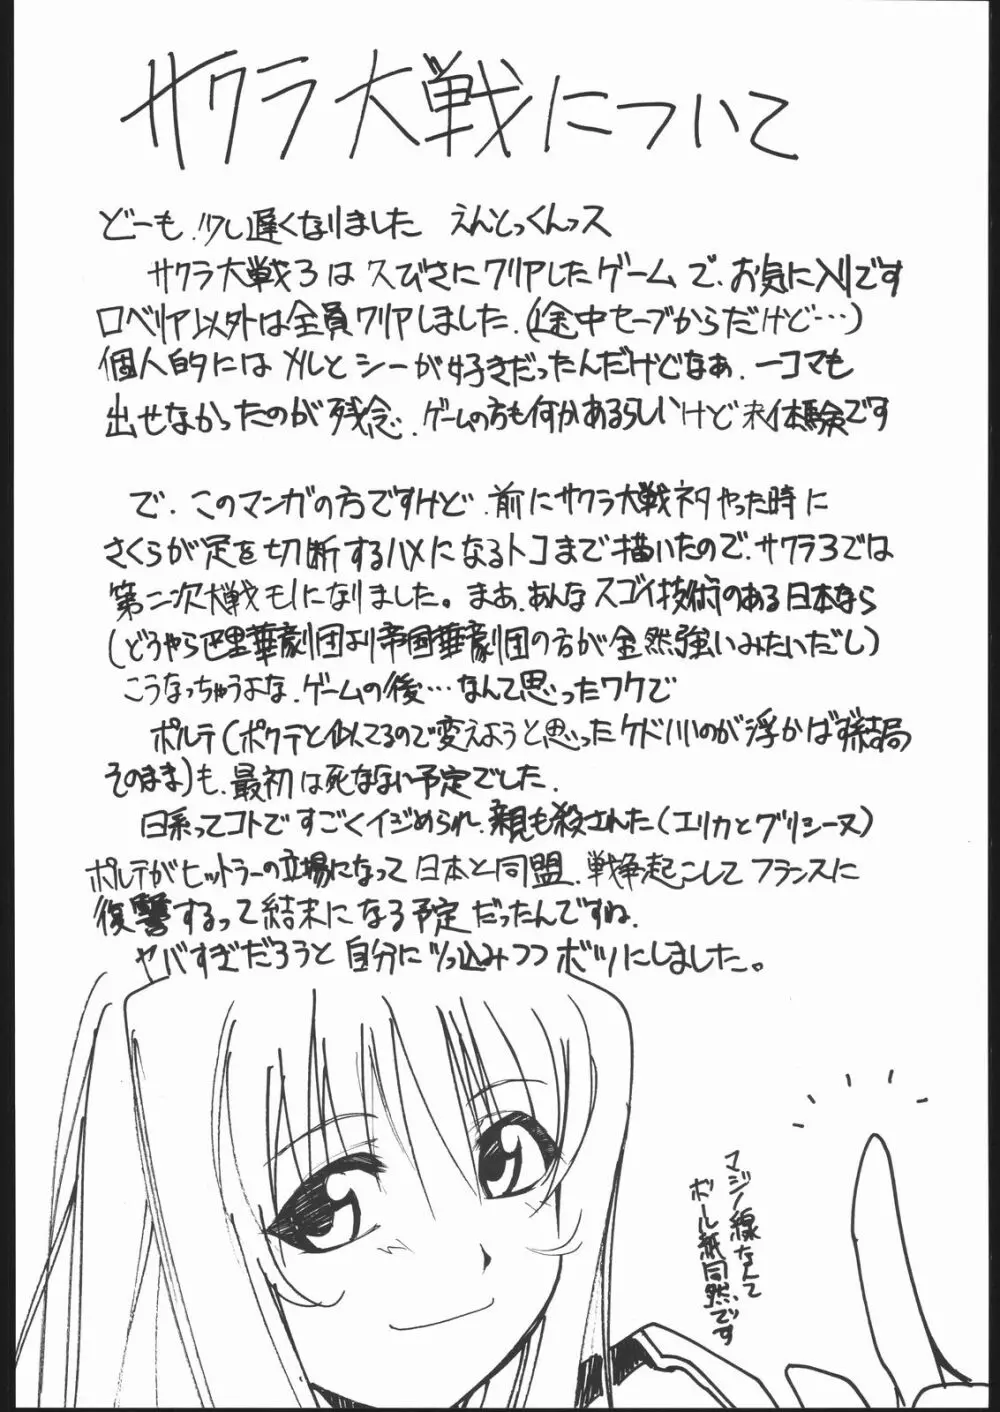 サクラ大戦について
どーも!!少し遅くなりました えんとっくんっス
サクラ大戦3は久びさにクリアしたゲームで、お気に入りです
ロベリア以外は全員クリアしました。(途中セーブからだけど…)
個人的にはメルとシーが好きだったんだけどなぁ、一コマも
出せなかったのが残念。ゲームの方も何かあるらしいけど未体験です
で、このマンガの方ですけど、前にサクラ大戦ネタやった時に
さくらが足を切断するハメになるトコまで描いたので、サクラ3では
第二次大戦モノになりました。まぁ、あんなスゴイ技術のある日本なら
(どうやら巴里華劇団より帝国華劇団の方が全然強いみたいだし)
こうなっちゃうよな、ゲームの後…なんて思ったワケで
ポルテ(ポクテと似てるので変えようと思ったケドいいのが浮かばず結局
そのまま)も、最初は死なない予定でした。
日系ってコトですごくイジめられ、親も殺された(エリカとグリシーヌ)
ポルテがヒットラーの立場になって日本と同盟、戦争起こしてフランスに
復讐するって結末になる予定だったんですね。
ヤバすぎだろうと自分にツッ込みつつボツにしました。
マジノ線なんて
ボール紙同然です